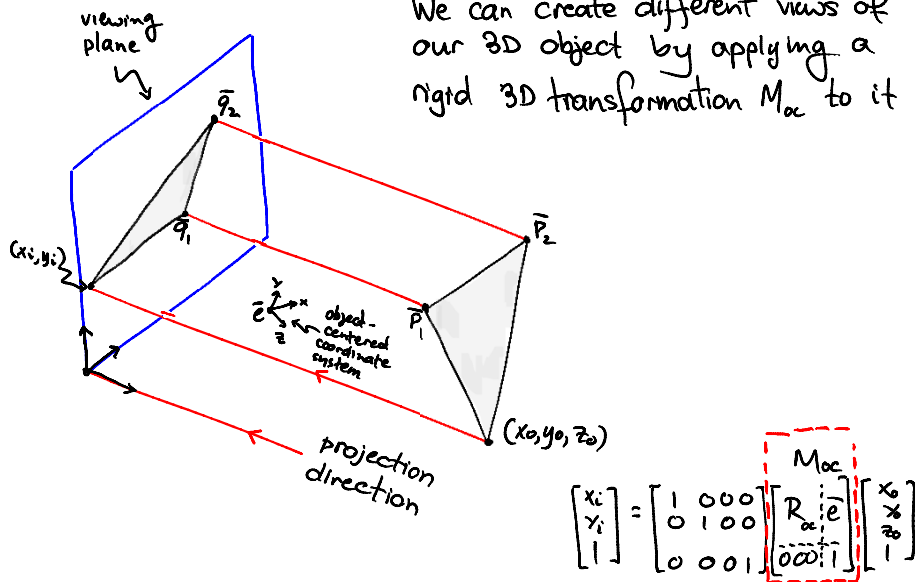 We can create different views of
our 3D object by applying a
rigid 3D transformation Moc to it
viewing
plane
q̄2
q̄1
(xi,yi)
p̄2
p̄1
y
x
z
ē
object-
centered
coordinate
system
(x0,y0,z0)
projection
direction
Moc
[xi yi 1] = [1 0 0 0; 0 1 0 0; 0 0 0 1] [Roc ē; 0 0 0 1] [x0 y0 z0 1]